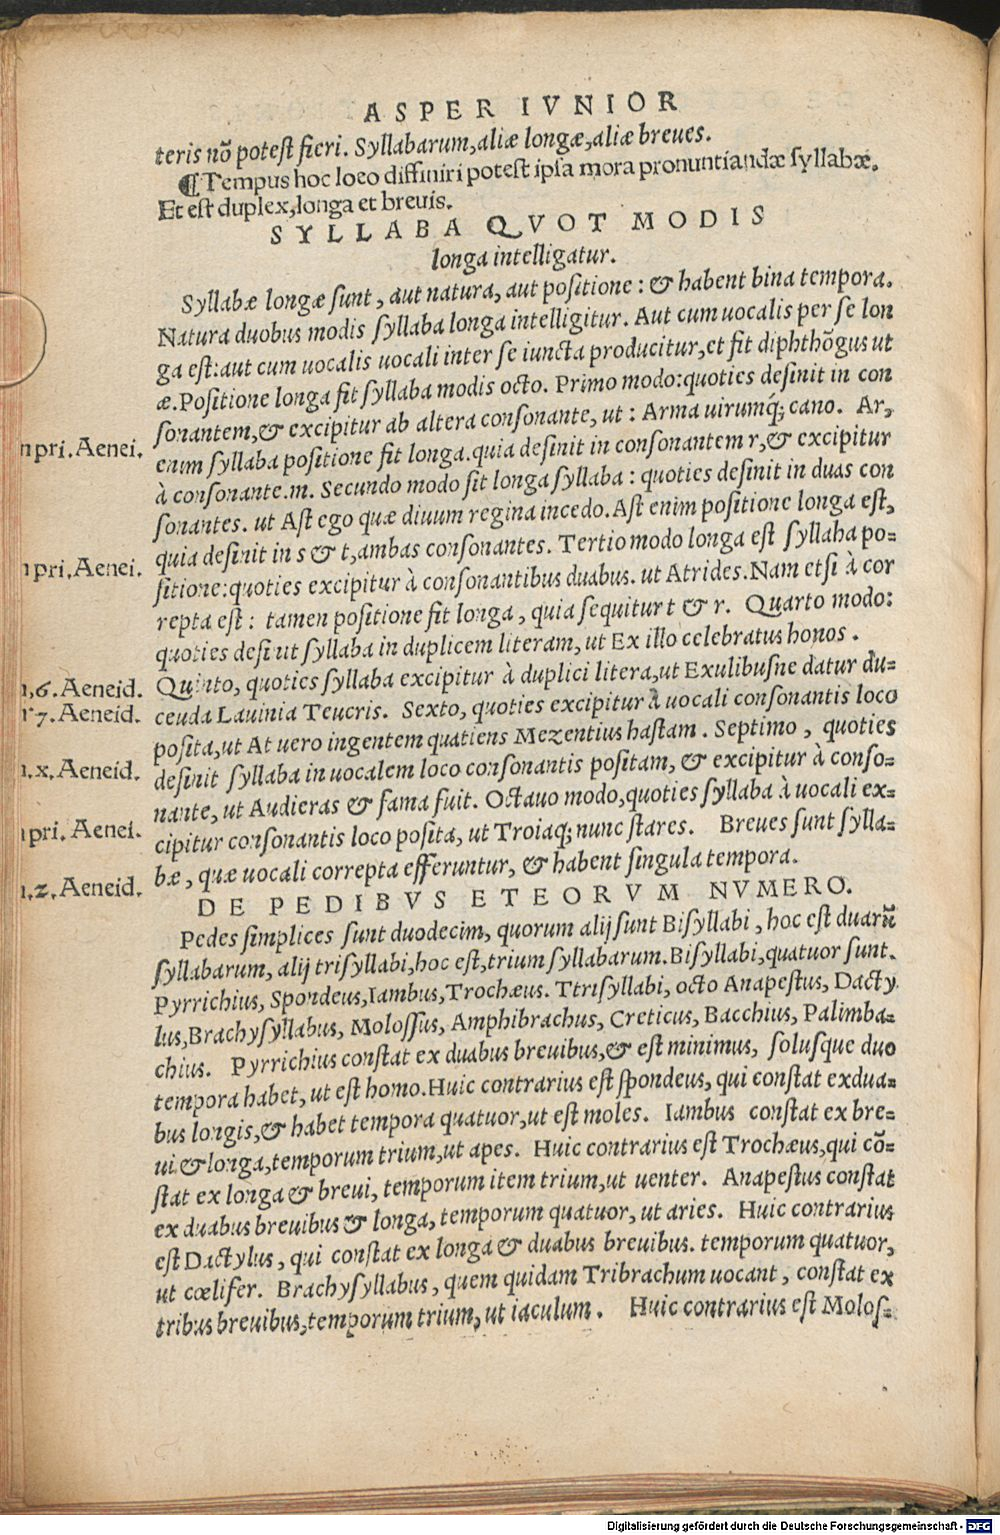 ASPER IVNIOR
teris nõ potest fieri. Syllabarum, aliæ longæ, aliæ breues.
¶ Tempus hoc loco diffiniri potest ipsa mora pronuntiandæ syllabæ.
Et est duplex, longa et brevis.
SYLLABA QVOT MODIS
longa intelligatur.
Syllabæ longæ sunt, aut natura, aut positione: & habent bina tempora.
Natura duobus modis syllaba longa intelligitur. Aut cum uocalis per se lon
ga est: aut cum uocalis uocali inter se iuncta producitur, et fit diphthõgus ut
æ. Positione longa fit syllaba modis octo. Primo modo: quoties desinit in con
sonantem, & excipitur ab altera consonante, ut: Arma uirumq́; cano. Ar,
enim syllaba positione fit longa. quia desinit in consonantem r, & excipitur
n pri. Aenei.
à consonante. m. Secundo modo fit longa syllaba: quoties desinit in duas con
sonantes. ut Ast ego quæ diuum regina incedo. Ast enim positione longa est,
quia desinit in s & t, ambas consonantes. Tertio modo longa est syllaba po-
n pri. Aenei.
sitione: quoties excipitur à consonantibus duabus. ut Atrides. Nam etsi à cor
repta est: tamen positione fit longa, quia sequitur t & r. Quarto modo:
quoties desinit syllaba in duplicem literam, ut Ex illo celebratus honos.
Quinto, quoties syllaba excipitur à duplici litera, ut Exulibusne datur du-
6. Aeneid.
ceuda Lauinia Teucris. Sexto, quoties excipitur à uocali consonantis loco
7. Aeneid.
posita, ut At uero ingentem quatiens Mezentius hastam. Septimo, quoties
desinit syllaba in uocalem loco consonantis positam, & excipitur à conso-
x. Aeneid.
nante, ut Audieras & fama fuit. Octauo modo, quoties syllaba à uocali ex-
cipitur consonantis loco posita, ut Troiaq; nunc stares. Breues sunt sylla-
pri. Aenei.
bæ, quæ uocali correpta efferuntur, & habent singula tempora.
2. Aeneid.
DE PEDIBVS ET EORVM NVMERO.
Pedes simplices sunt duodecim, quorum alij sunt Bisyllabi, hoc est duarũ
syllabarum, alij trisyllabi, hoc est, trium syllabarum. Bisyllabi, quatuor sunt.
Pyrrichius, Spondeus, Iambus, Trochæus. Ttrisyllabi, octo Anapestus, Dacty
lus, Brachysyllabus, Molossus, Amphibrachus, Creticus, Bacchius, Palimba-
chius. Pyrrichius constat ex duabus breuibus, & est minimus, solusque duo
tempora habet, ut est homo. Huic contrarius est spondeus, qui constat ex dua-
bus longis, & habet tempora quatuor, ut est moles. Iambus constat ex bre-
ui & longa, temporum trium, ut apes. Huic contrarius est Trochæus, qui cõ-
stat ex longa & breui, temporum item trium, ut uenter. Anapestus constat
ex duabus breuibus & longa, temporum quatuor, ut aries. Huic contrarius
est Dactylus, qui constat ex longa & duabus breuibus. temporum quatuor,
ut cœlifer. Brachysyllabus, quem quidam Tribrachum uocant, constat ex
tribus breuibus, temporum trium, ut iaculum. Huic contrarius est Molos-
Digitalisierung gefördert durch die Deutsche Forschungsgemeinschaft - DFG